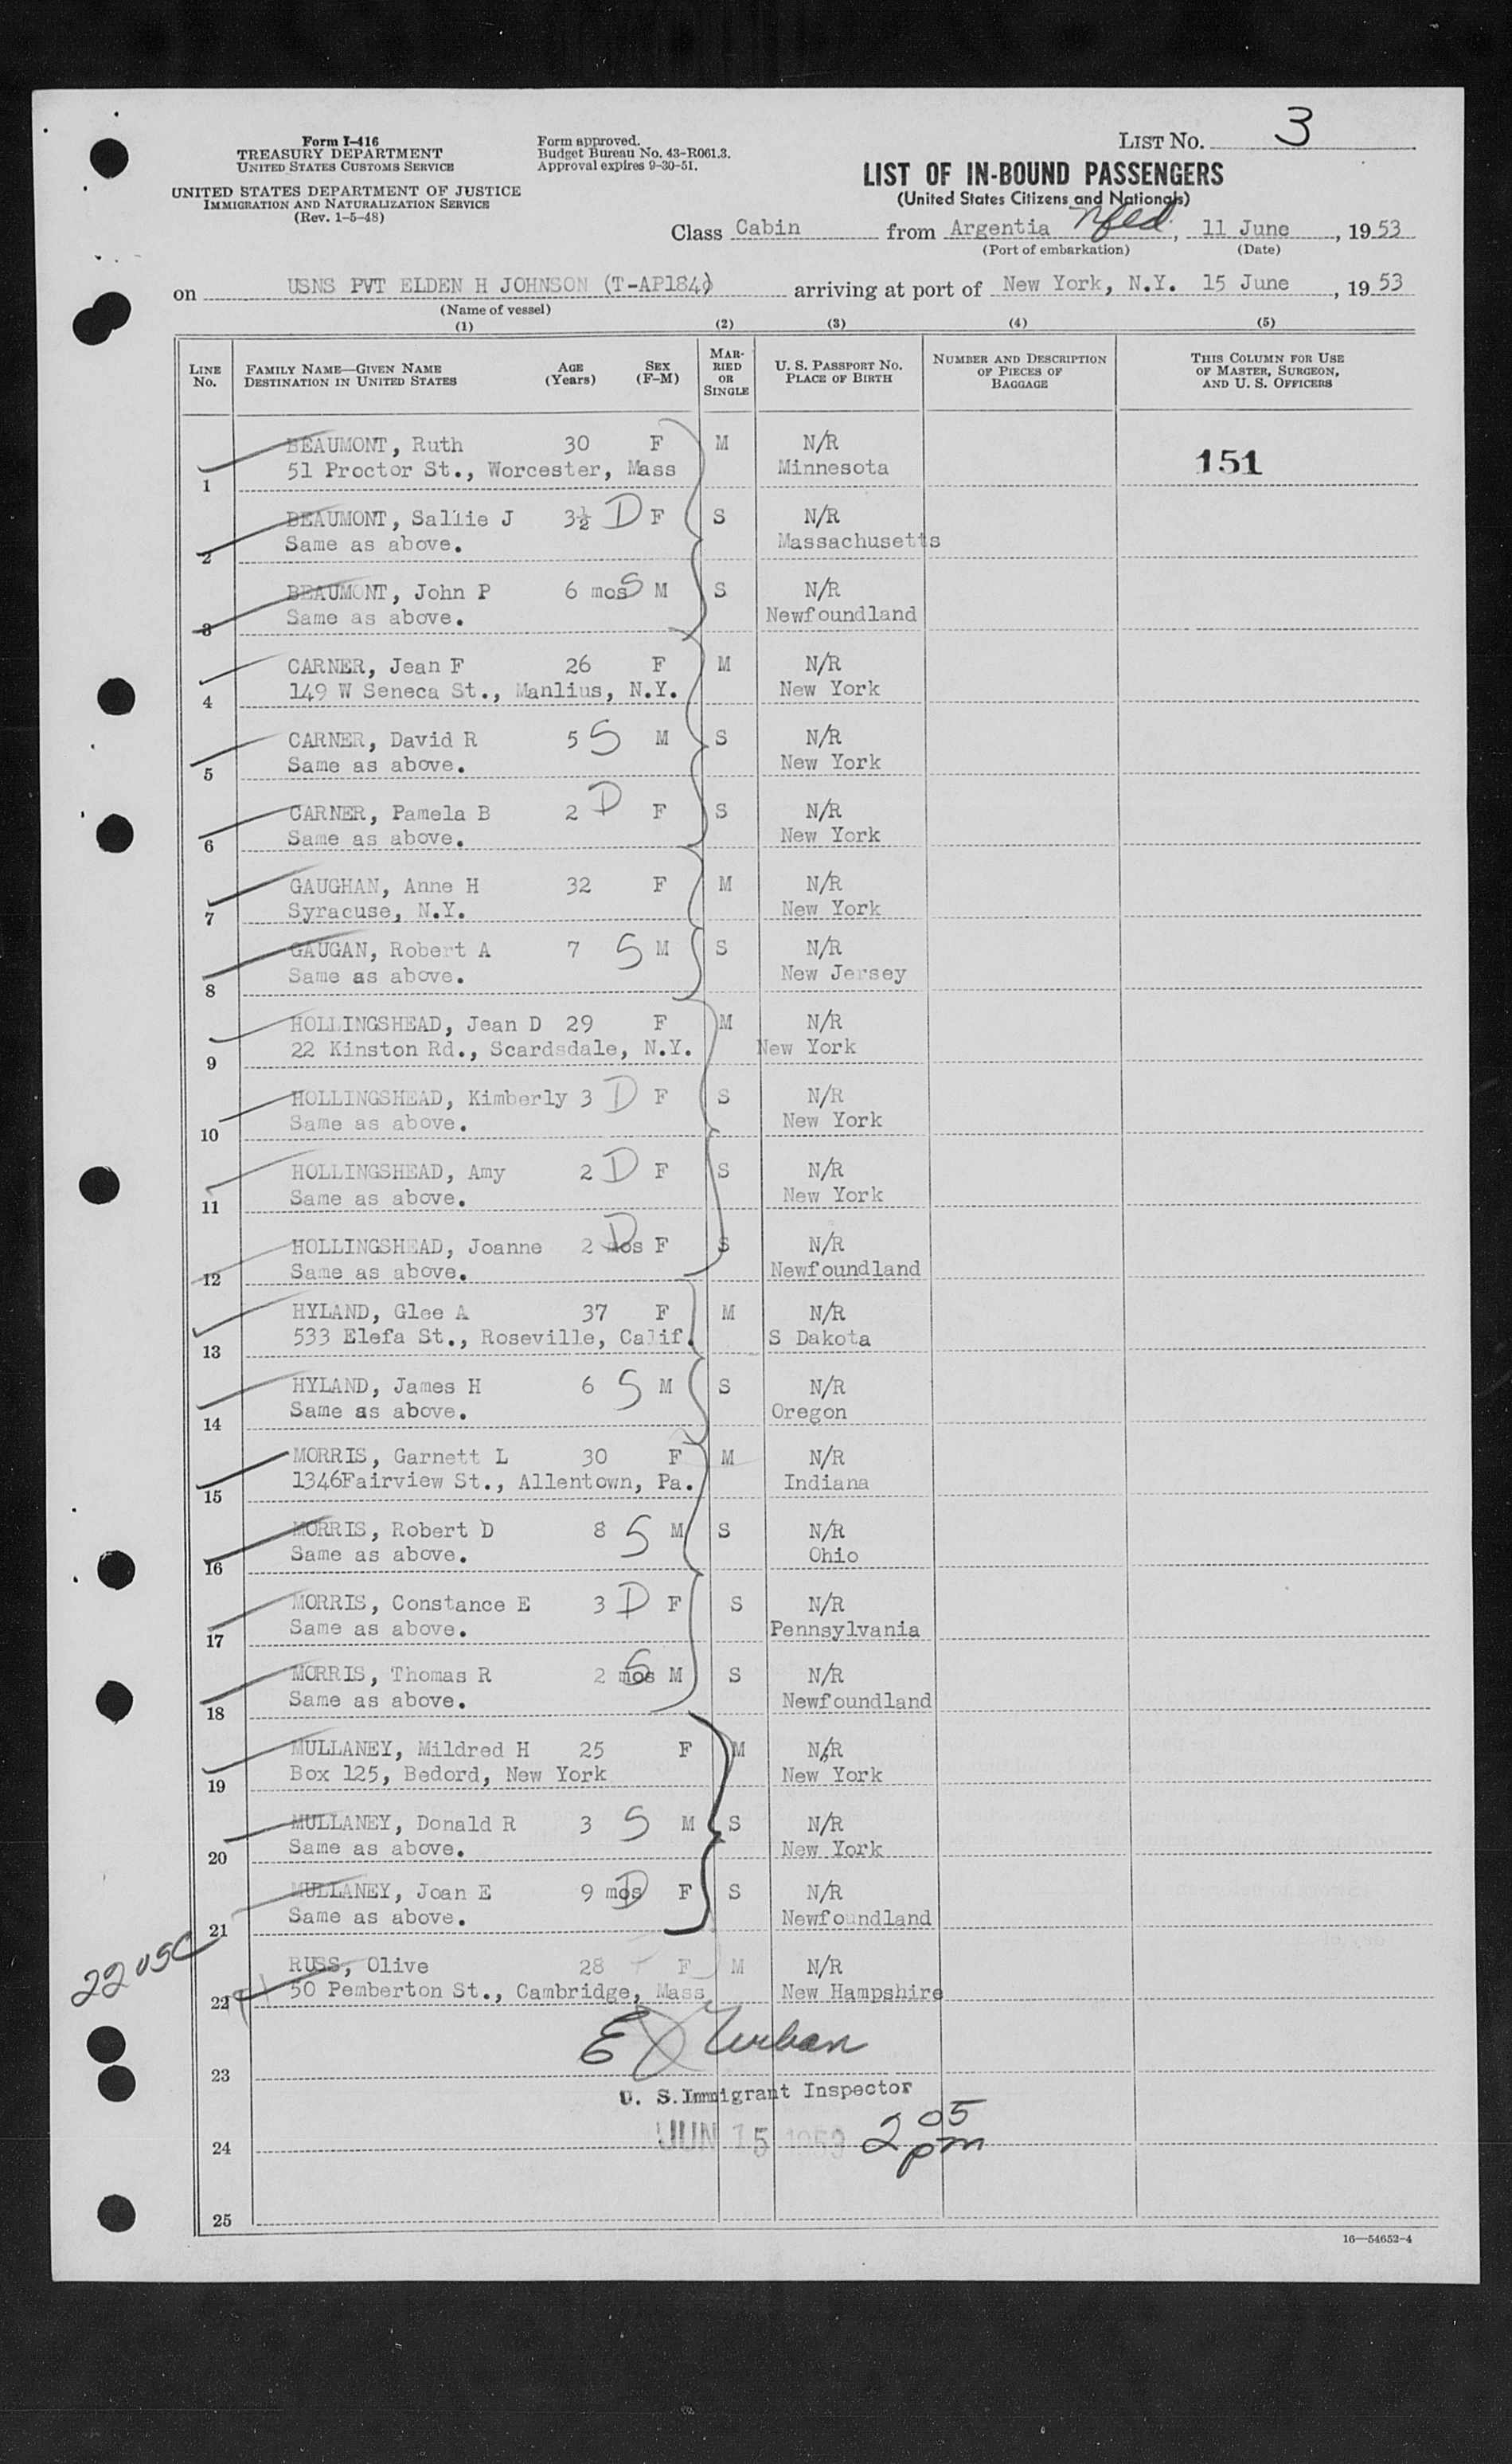 Form I-416
TREASURY DEPARTMENT
UNITED STATES CUSTOMS SERVICE
UNITED STATES DEPARTMENT OF JUSTICE
IMMIGRATION AND NATURALIZATION SERVICE
(Rev. 1-5-48)
Form approved.
Budget Bureau No. 43-R061.3.
Approval expires 9-30-51.
LIST NO. 3
LIST OF IN-BOUND PASSENGERS
(United States Citizens and Nationals)
Class Cabin from Argentia Nfld., 11 June, 1953
(Port of embarkation) (Date)
on USNS PVT ELDEN H JOHNSON (T-AP184) arriving at port of New York, N.Y. 15 June, 1953
(Name of vessel)
(1) (2) (3) (4) (5)
LINE No. FAMILY NAME—GIVEN NAME DESTINATION IN UNITED STATES AGE (Years) SEX (F-M) MARRIED OR SINGLE U. S. PASSPORT No. PLACE OF BIRTH NUMBER AND DESCRIPTION OF PIECES OF BAGGAGE THIS COLUMN FOR USE OF MASTER, SURGEON, AND U. S. OFFICERS
BEAUMONT, Ruth 30 F M N/R
1 51 Proctor St., Worcester, Mass Minnesota 151
BEAUMONT, Sallie J 3½ D F S N/R
2 Same as above. Massachusetts
BEAUMONT, John P 6 mos S M S N/R
3 Same as above. Newfoundland
CARNER, Jean F 26 F M N/R
4 149 W Seneca St., Manlius, N.Y. New York
CARNER, David R 5 S M S N/R
5 Same as above. New York
CARNER, Pamela B 2 D F S N/R
6 Same as above. New York
GAUGHAN, Anne H 32 F M N/R
7 Syracuse, N.Y. New York
GAUGAN, Robert A 7 S M S N/R
8 Same as above. New Jersey
HOLLINGSHEAD, Jean D 29 F M N/R
9 22 Kinston Rd., Scardsdale, N.Y. New York
HOLLINGSHEAD, Kimberly 3 D F S N/R
10 Same as above. New York
HOLLINGSHEAD, Amy 2 D F S N/R
11 Same as above. New York
HOLLINGSHEAD, Joanne 2 mos D F S N/R
12 Same as above. Newfoundland
HYLAND, Glee A 37 F M N/R
13 533 Elefa St., Roseville, Calif. S Dakota
HYLAND, James H 6 S M S N/R
14 Same as above. Oregon
MORRIS, Garnett L 30 F M N/R
15 1346Fairview St., Allentown, Pa. Indiana
MORRIS, Robert D 8 S M S N/R
16 Same as above. Ohio
MORRIS, Constance E 3 D F S N/R
17 Same as above. Pennsylvania
MORRIS, Thomas R 2 mos S M S N/R
18 Same as above. Newfoundland
MULLANEY, Mildred H 25 F M N/R
19 Box 125, Bedord, New York New York
MULLANEY, Donald R 3 S M S N/R
20 Same as above. New York
MULLANEY, Joan E 9 mos D F S N/R
21 Same as above. Newfoundland
22 USC
RUSS, Olive 28 F M N/R
22 50 Pemberton St., Cambridge, Mass New Hampshire
E Urban
23
U. S. Immigrant Inspector
24 JUN 15 1953 2 05 pm
25
16—54652-4